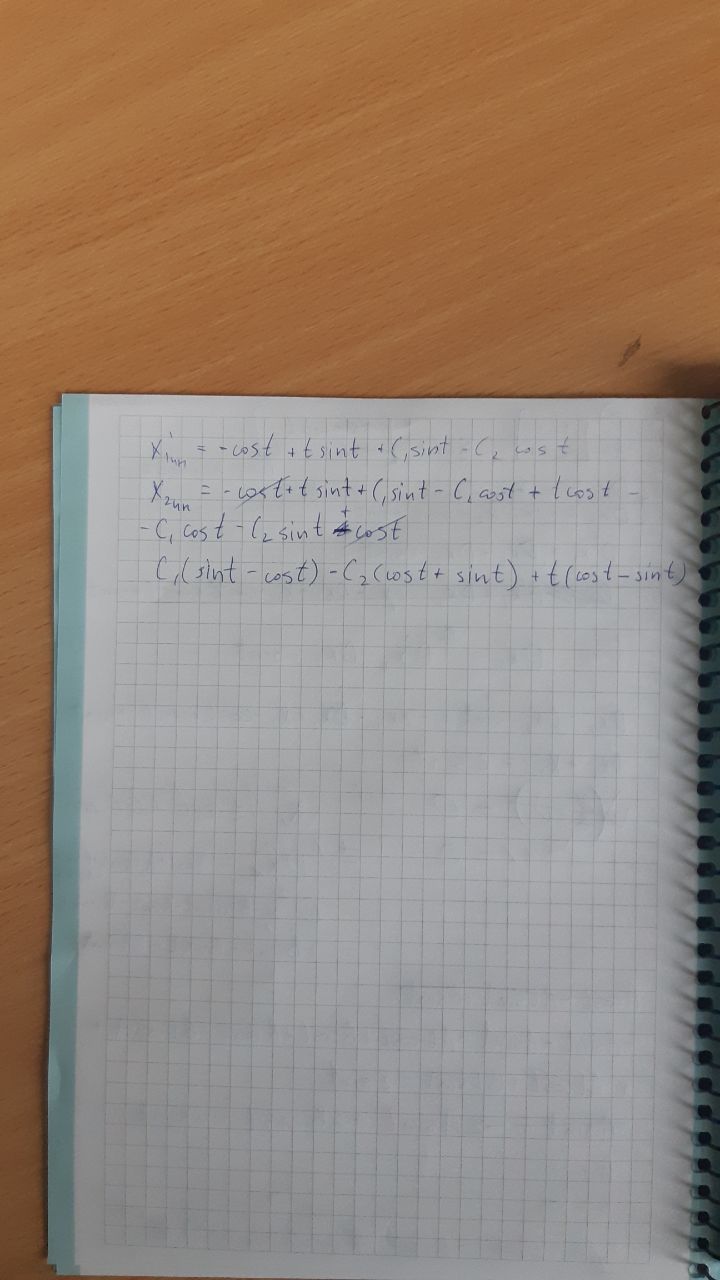 x'₁ₙₙ = -cost + t sint + C₁sint - C₂ cost
x₂ₙₙ = -cost + t sint + C₁sint - C₂cost + t cost -
- C₁ cost - C₂ sint + cost
C₁(sint - cost) - C₂(cost + sint) + t(cost - sint)